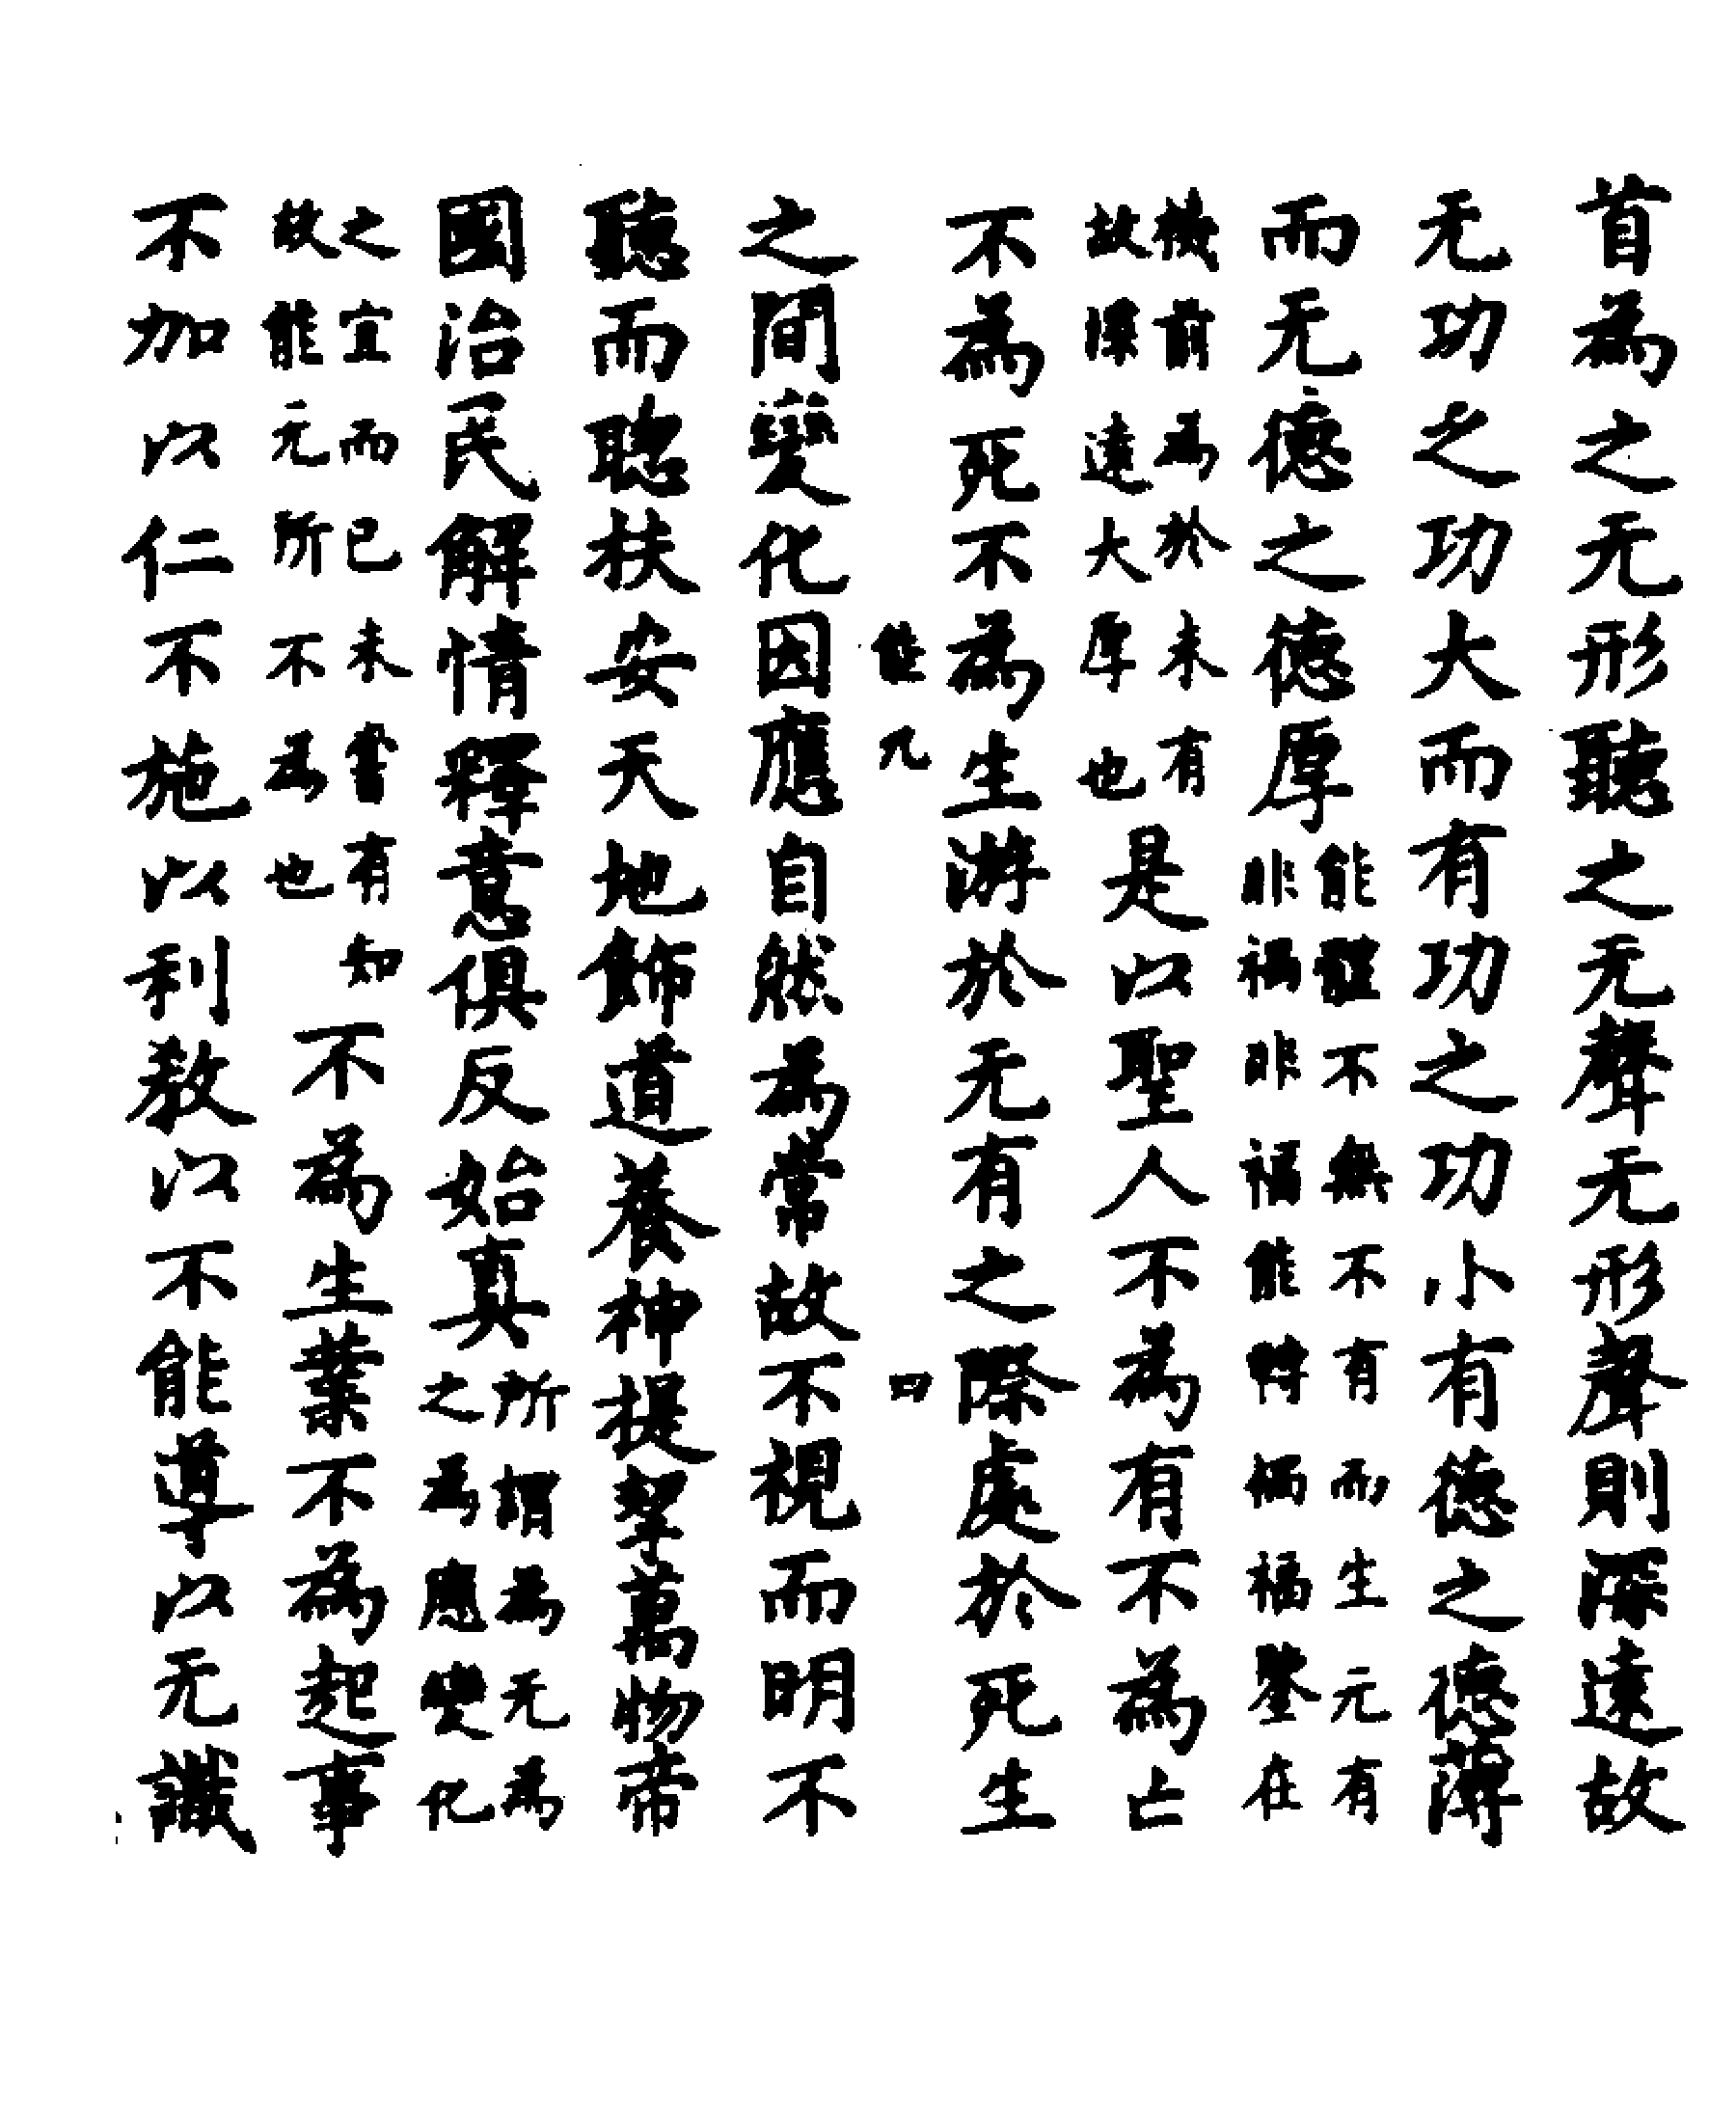 首為之无形聽之无聲无形聲則深遠故
无功之功大而有功之功小有德之德薄
而无德之德厚
能體不無不有而生元有
非禍非福能轉禍福鑒在
機前為於未有
故深遠大厚也
是以聖人不為有不為亡
不為死不為生游於无有之際處於死生
能九
四
之間變化因應自然為常故不視而明不
聽而聰扶安天地飾道養神提挈萬物帝
國治民解情釋意俱反始真
所謂為无為
之為應變化
之宜而已未嘗有知
故能元所不為也
不為生業不為起事
不加以仁不施以利教以不能導以无識